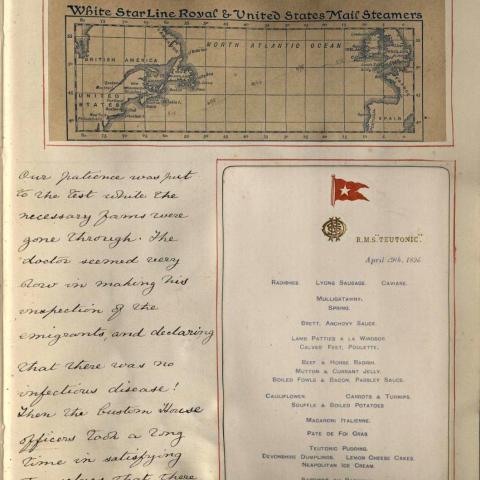 White Star Line Royal & United States Mail Steamers
NORTH ATLANTIC OCEAN
BRITISH AMERICA
UNITED
STATES
SPAIN
Our patience was put
to the test while the
necessary forms were
gone through. The
doctor seemed very
slow in making his
inspection of the
emigrants, and declaring
that there was no
infectious disease!
Then the Custom House
officers took a long
time in satisfying
that there
R.M.S. "TEUTONIC".
April 29th, 1896
RADISHES. LYONS SAUSAGE. CAVIARE.
MULLIGATAWNY.
SPRING.
BRETT, ANCHOVY SAUCE.
LAMB PATTIES A LA WINDSOR
CALVES' FEET, POULETTE.
BEEF & HORSE RADISH.
MUTTON & CURRANT JELLY.
BOILED FOWLS & BACON, PARSLEY SAUCE.
CAULIFLOWER. CARROTS & TURNIPS.
SOUFFLE & BOILED POTATOES
MACARONI ITALIENNE.
PATE DE FOI GRAS
TEUTONIC PUDDING.
DEVONSHIRE DUMPLINGS. LEMON CHEESE CAKES.
NEAPOLITAN ICE CREAM.